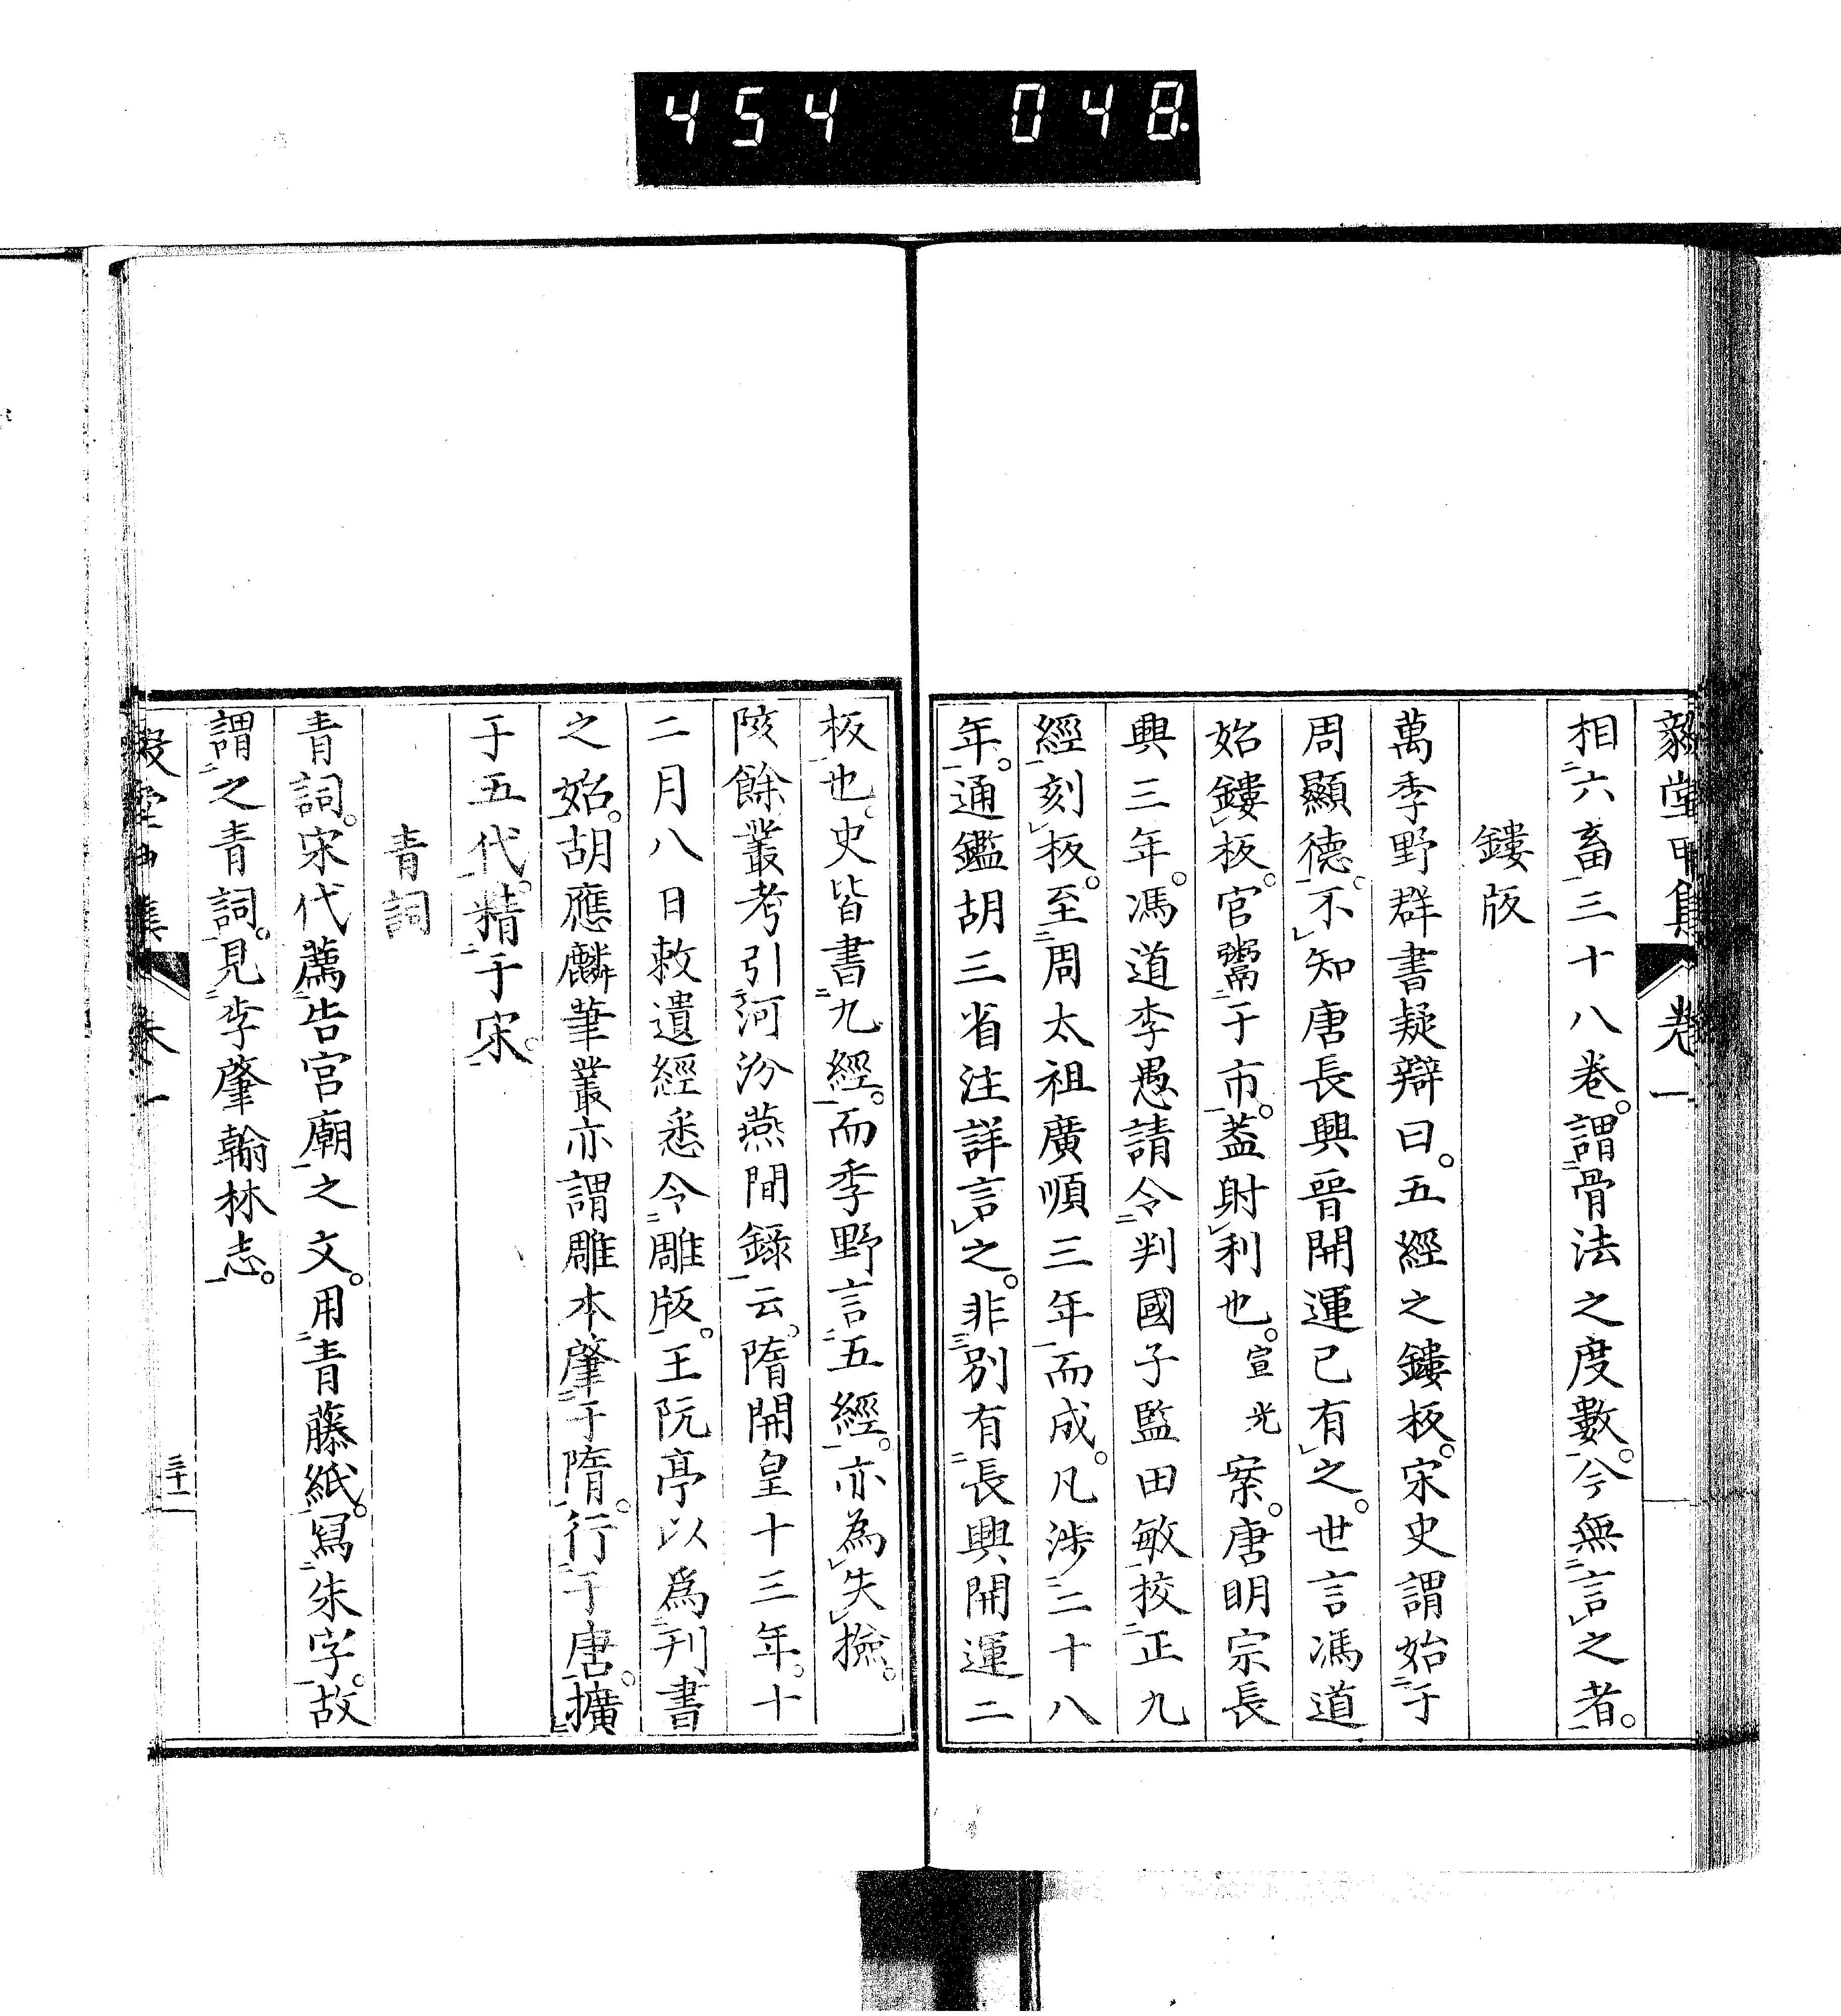 454 048
毅堂甲集 卷一
相六畜三十八卷。謂骨法之度數。今無言之者。
鏤版
萬季野群書疑辯曰。五經之鏤板。宋史謂始于
周顯德。不知唐長興晉開運已有之。世言馮道
始鏤板。官鬻于市。蓋射利也。宣光案。唐明宗長
興三年。馮道李愚請令判國子監田敏校正九
經刻板。至周太祖廣順三年而成。凡涉二十八
年。通鑑胡三省注詳言之。非別有長興開運二
板也。史皆書九經。而季野言五經。亦為失撿。
陔餘叢考引河汾燕間錄云。隋開皇十三年。十
二月八日敕遺經悉令雕版。王阮亭以爲刊書
之始。胡應麟筆叢亦謂雕本肇于隋。行于唐。擴
于五代。精于宋。
青詞
青詞。宋代薦告宮廟之文。用青藤紙。寫朱字。故
謂之青詞。見李肇翰林志。
毅堂甲集 卷一 三十一